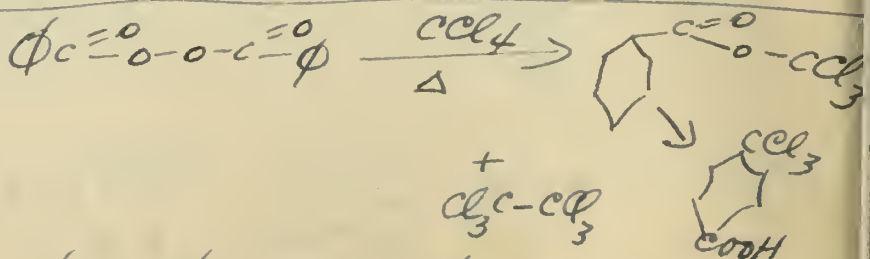 φC=O-O-O-C=O-φ CCl4 Δ → C=O-O-CCl3
+
Cl3C-CCl3
CCl3
COOH